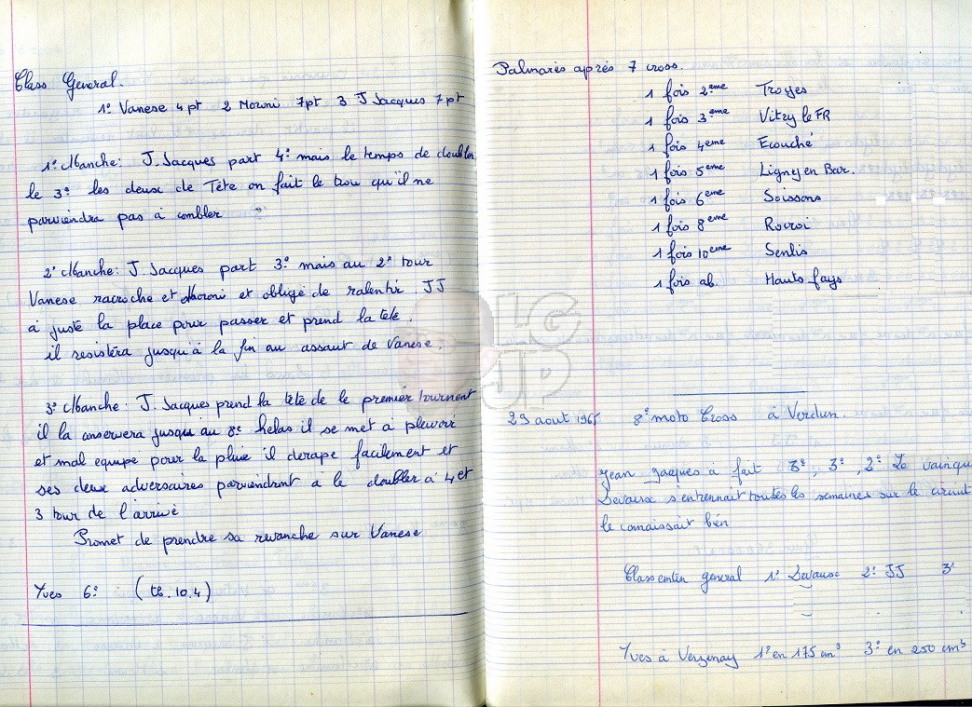 Class General.
1º Vanese 4 pt 2 Moroni 7pt 3 J Jacques 7 pt
1º Manche: J. Jacques part 4º mais le temps de doubler
le 3º les deux de Tête on fait le trou qu'il ne
parviendra pas à combler
2º Manche: J. Jacques part 3º mais au 2º tour
Vanese racroche et Moroni et obligé de ralentir. JJ
à juste la place pour passer et prend la tête.
il resistera jusqu'à la fin au assaut de Vanese.
3º Manche: J. Jacques prend la tête de le premier tournent
il la conservera jusqu'au 8º helas il se met à pleuvoir
et mal equipe pour la pluie il derape facilement et
ses deux adversaires parviendront à le doubler à 4 et
3 tour de l'arrivé
Promet de prendre sa revanche sur Vanese
Yves 6º (tb. 10. 4)
Palmarès aprés 7 cross.
1 fois 2eme Troyes
1 fois 3eme Vitry le FR
1 fois 4eme Ecouché
1 fois 5eme Ligny en Bar.
1 fois 6eme Soissons
1 fois 8eme Rocroi
1 fois 10eme Senlis
1 fois ab. Hauts fays
LG
JP
29 aout 1965 8º moto Cross à Verdun.
Jean Jacques à fait 3º, 2º Le vainqu
Devaux s'entrennait toutes les semaines sur le circuit
le connaissait bien
Classemtn general 1º Devause 2º JJ 3º
Yves à Verzenay 1º en 175 cm³ 3º en 250 cm³